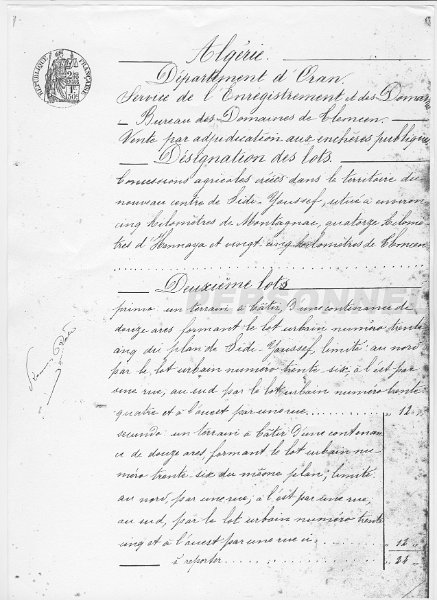 RÉPUBLIQUE FRANÇAISE
Algérie.
Département d'Oran.
Service de l'Enregistrement et des Domai
Bureau des Domaines de Tlemcen.
Vente par adjudication aux enchères publiques
Désignation des lots.
Concessions agricoles créées dans le territoire du
nouveau centre de Sidi-Youssef, situé à environ
cinq kilomètres de Montagnac, quatorze kilomè-
tres d'Hennaya et vingt cinq kilomètres de Tlemcen
Deuxième lots
PERSONNE
primo un terrain à bâtir, d'une contenance de
douze ares formant le lot urbain numéro trente
cinq du plan de Sidi-Youssef, limité: au nord
par le lot urbain numéro trente six, à l'est par
une rue, au sud par le lot urbain numéro trente
quatre et à l'ouest par une rue 12
secundo un terrain à bâtir d'une contenan
ce de douze ares, formant le lot urbain nu-
méro trente-six du même plan, limité
au nord, par une rue, à l'est par une rue,
au sud, par le lot urbain numéro trente
cinq et à l'ouest par une rue ci 12
à reporter 24